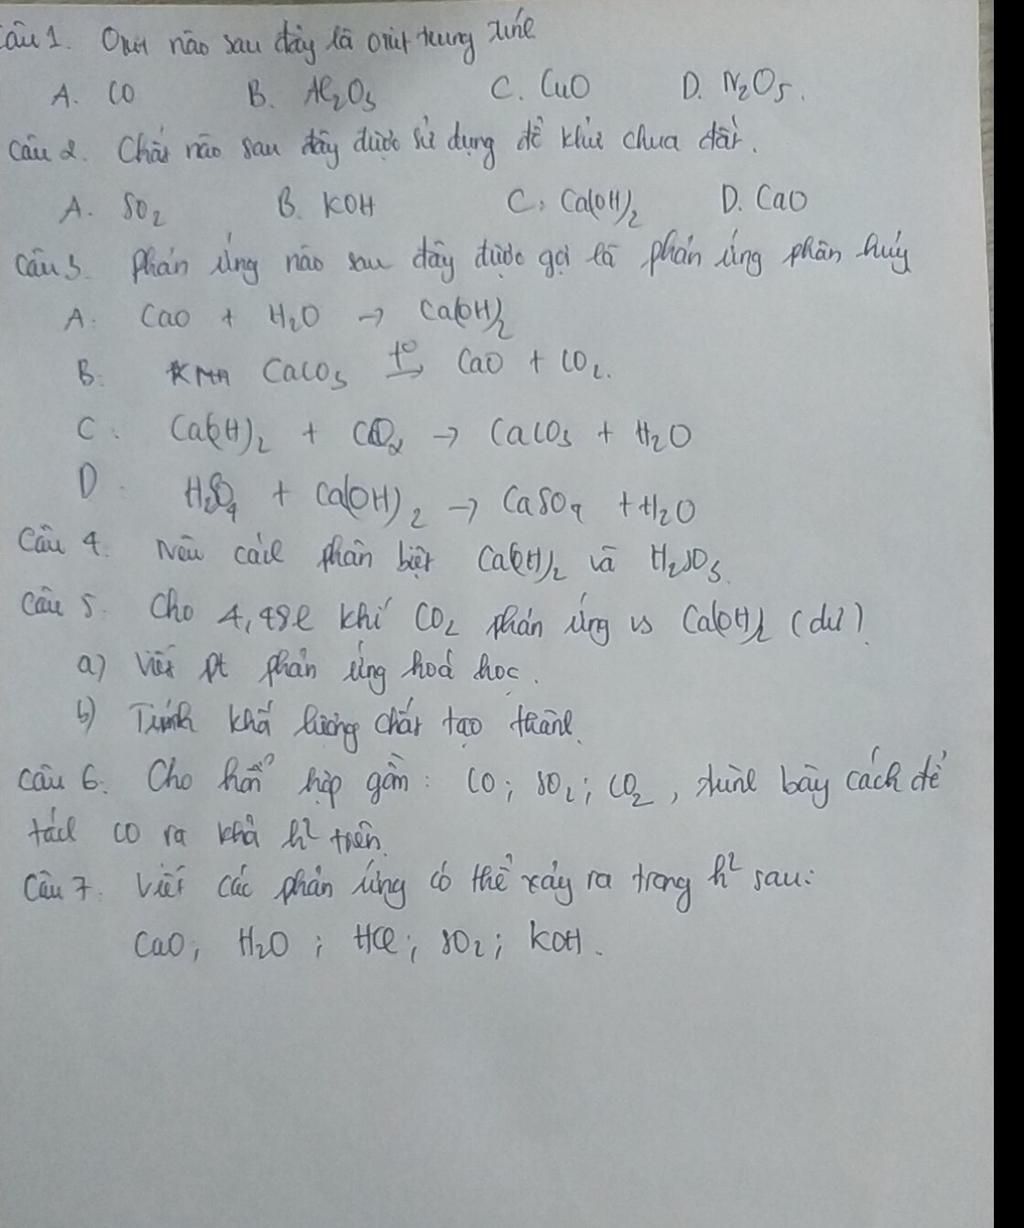 Câu 1. Oxit nào sau đây là oxit trung tính
A. CO B. Al2O3 C. CuO D. N2O5.
Câu 2. Chất nào sau đây được sử dụng để khử chua đất.
A. SO2 B. KOH C. Ca(OH)2 D. CaO
Câu 3. Phản ứng nào sau đây được gọi là phản ứng phân hủy
A. CaO + H2O → Ca(OH)2
B. CaCO3 t° → CaO + CO2.
C. Ca(OH)2 + CO2 → CaCO3 + H2O
D. H2SO4 + Ca(OH)2 → CaSO4 + H2O
Câu 4. Nêu cách phân biệt Ca(OH)2 và H2SO3.
Câu 5. Cho 4,48l khí CO2 phản ứng vs Ca(OH)2 (dư).
a) Viết pt phản ứng hoá học.
b) Tính khố lượng chất tạo thành.
Câu 6. Cho hỗn hợp gồm: CO; SO2; CO2, trình bày cách để
tách CO ra khỏ h2 trên.
Câu 7. Viết các phản ứng có thể xảy ra trong h2 sau:
CaO; H2O; HCl; SO2; KOH.